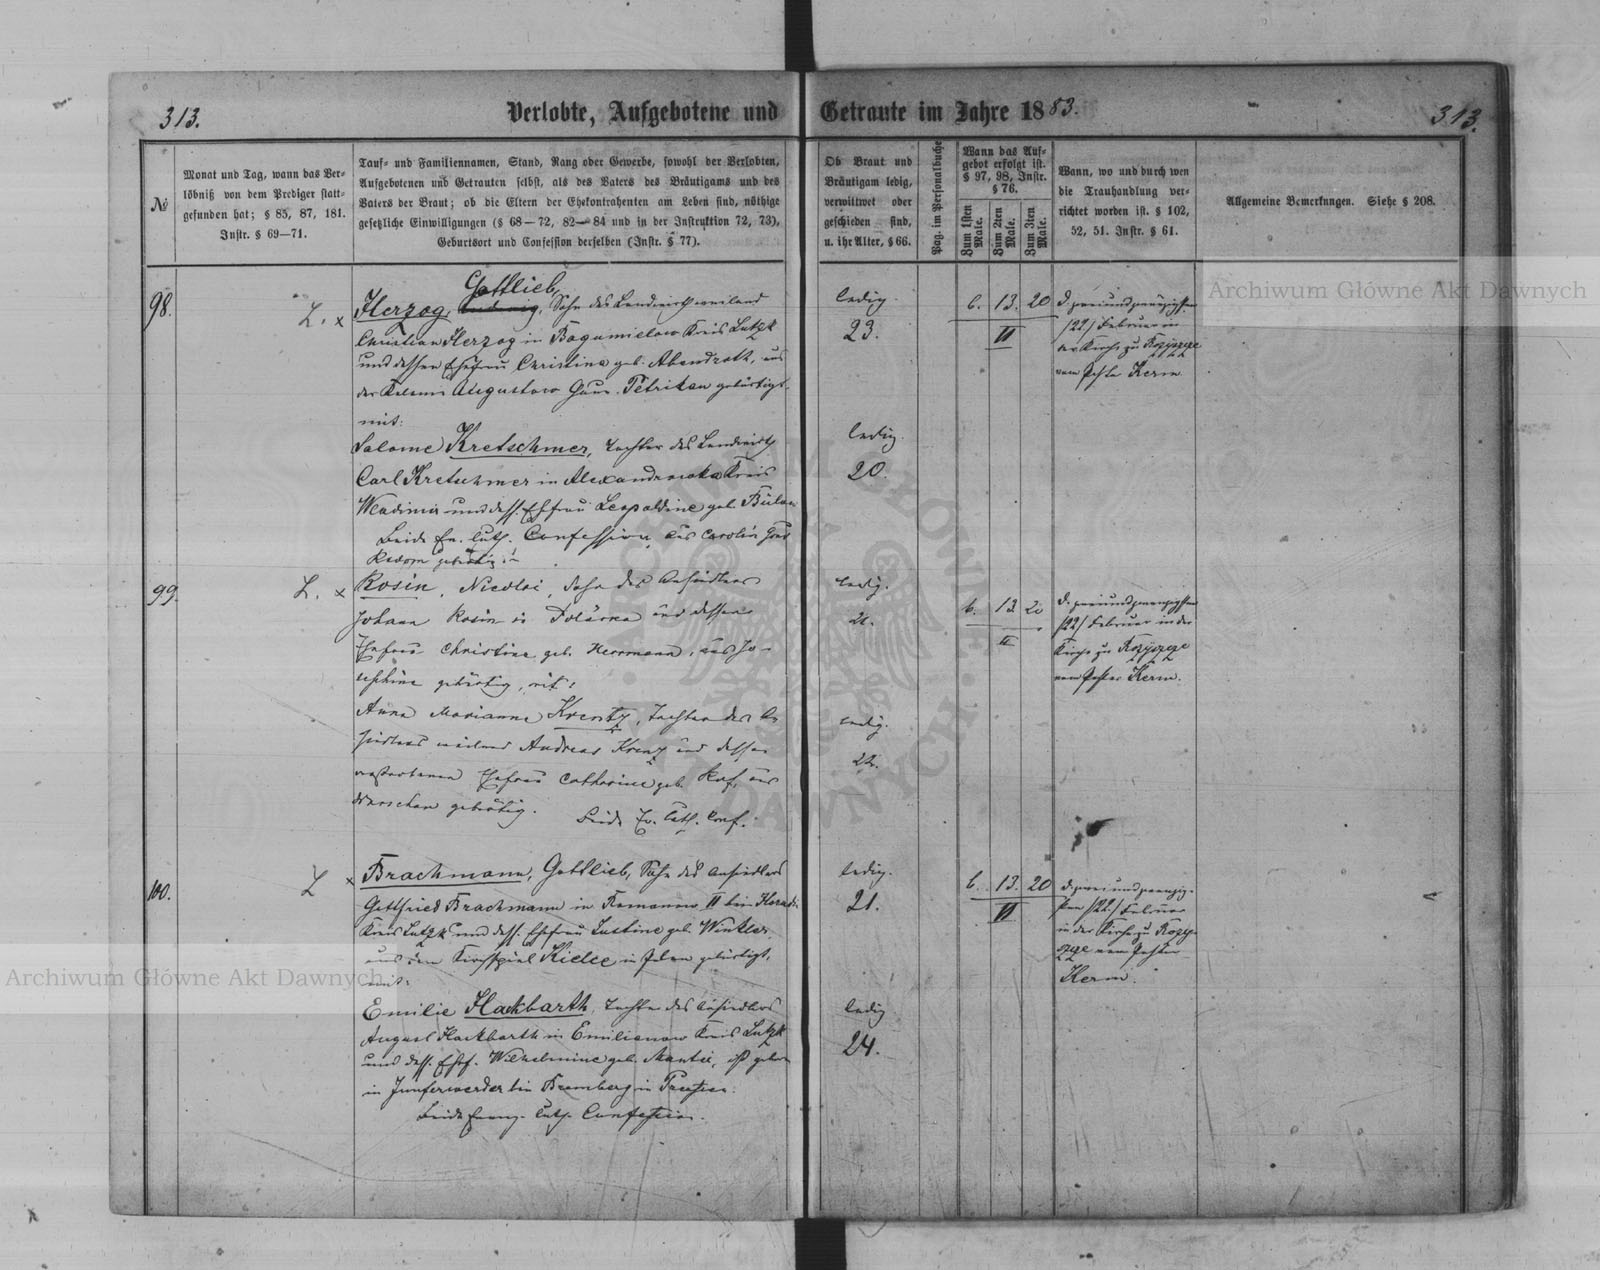 313.
Verlobte, Aufgebotene und
Getraute im Jahre 1883.
313.
№
Monat und Tag, wann das Ver-
löbniß von dem Prediger statt-
gefunden hat; § 85, 87, 181.
Instr. § 69—71.
Tauf- und Familiennamen, Stand, Rang oder Gewerbe, sowohl der Verlobten,
Aufgebotenen und Getrauten selbst, als des Vaters des Bräutigams und des
Vaters der Braut; ob die Eltern der Ehekontrahenten am Leben sind, nöthige
gesetzliche Einwilligungen (§ 68—72, 82—84 und in der Instruktion 72, 73),
Geburtsort und Confession derselben (Instr. § 77).
Ob Braut und
Bräutigam ledig,
verwittwet oder
geschieden sind,
u. ihr Alter, § 66.
Pag. im Personalbuche
Wann das Auf-
gebot erfolgt ist.
§ 97, 98, Instr.
§ 76.
Zum 1sten Male.
Zum 2ten Male.
Zum 3ten Male.
Wann, wo und durch wen
die Trauhandlung ver-
richtet worden ist. § 102,
52, 51. Instr. § 61.
Allgemeine Bemerkungen. Siehe § 208.
98.
L. x
Gottlieb,
Herzog, Sohn des Landwirth weiland
Christian Herzog in Bogumielow Kreis Lutzk
und dessen Ehefrau Christine geb. Abendroth, aus
der Kolonie Augustow Gouv. Petrikau gebürtigt.
mit:
Salome Kretschmer, Tochter des Landwirth
Carl Kretschmer in Alexandrowka Kreis
Wladimir und dess. Ehefrau Leopoldine geb. Bülow
Beide Ev. luth. Confession, aus Carolin Gouv
Radom gebürtig
ledig.
23.
ledig.
20.
6. 13. 20
II
d. zweiundzwanzigsten
/22/ Februar in
der Kirche zu Rozyszcze
vom Pastor Kerm
99.
L. x
Rosin, Nicolai, Sohn des Ansiedlers
Johann Rosin in und dessen
Ehefrau Christine geb. Herrmann, aus Jo-
sephine gebürtig, mit:
Anna Marianna Krentz, Tochter des An-
siedlers weiland Andreas Krenz und dessen
verstorbenen Ehefrau Catharine geb. aus
Warschau gebürtig.
Beide Ev. Luth. Conf.
ledig.
21.
ledig.
22.
6. 13. 20
II
d. zweiundzwanzigsten
/22/ Februar in der
Kirche zu Rozyszcze
vom Pastor Kerm.
100.
L x
Brachmann, Gottlieb, Sohn des Ansiedlers
Gottfried Brachmann in Romanow II bei
Kreis Lutzk und dess. Ehefrau Justine geb. Winkler
aus dem Kirchspiel Kielce in Polen gebürtigt,
mit:
Emilie Hackbarth, Tochter des Ansiedlers
August Hackbarth in Emilianow Kreis Lutzk
und dess. Ehef. Wilhelmine geb. Mantei, ist geboren
in Junferwerder bin Bromberg in Preußen.
Beide Evang. Luth. Confession.
ledig.
21.
ledig
24.
6. 13. 20
II
d. zweiundzwanzig-
sten /22./ Februar
in der Kirche zu Rozy-
szcze vom Pastor
Kerm.
Archiwum Główne Akt Dawnych
Archiwum Główne Akt Dawnych